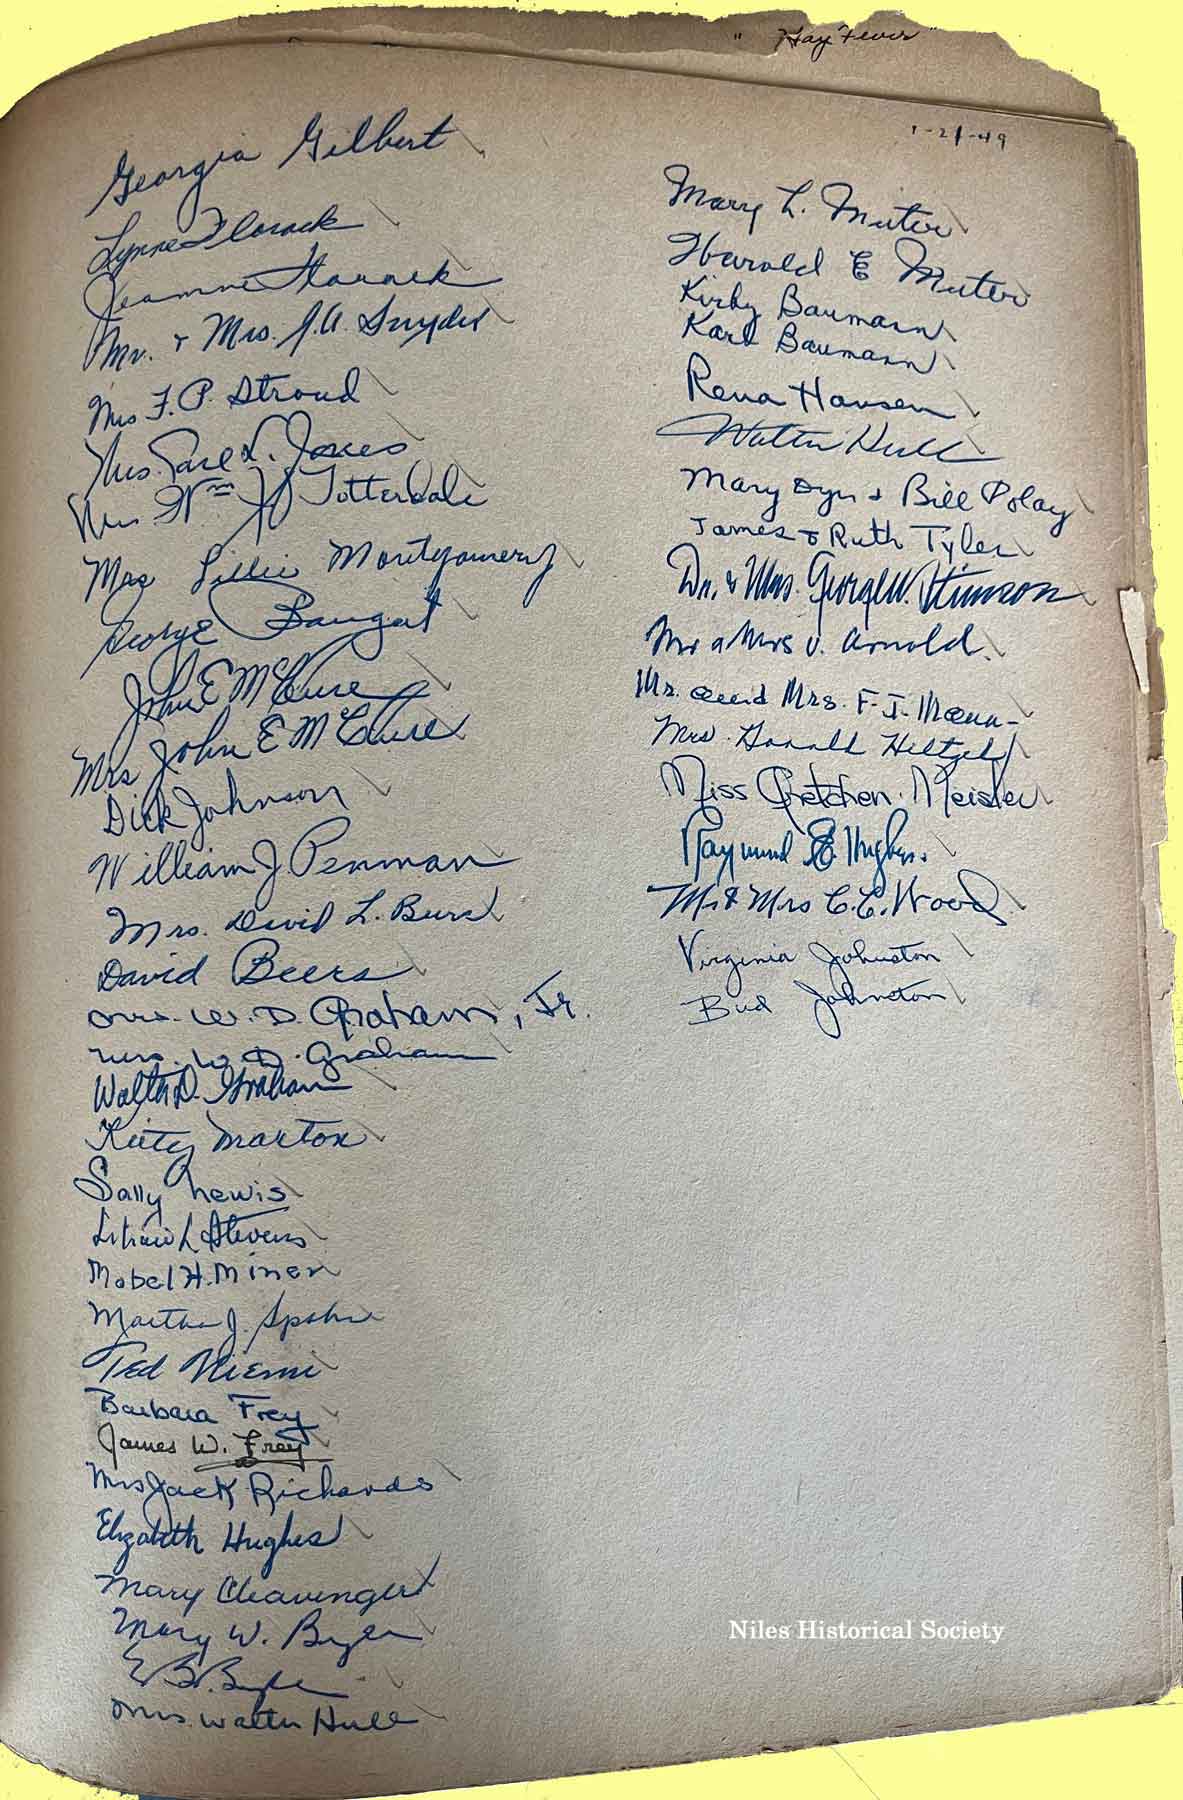 " Hay Fever "
1-21-49
Georgia Gilbert
Lynne Florack
Jeanne Florack
Mr. & Mrs. J.A. Snyder
Mrs F. P. Stroud
Mrs. Earl L. Jones
Mrs Wm H Totterdale
Mrs Lillie Montgomery
George Baugart
John E McClure
Mrs John E McClure
Dick Johnson
William J Penman
Mrs. David L. Beers
David Beers
Mrs. W. D. Graham, Jr.
Mrs. W. D. Graham
Walter D. Graham
Kitty Marton
Sally Lewis
L Stevens
Mabel H. Miner
Martha J. Spohn
Ted Niemi
Barbara Frey
James W. Frey
Mrs Jack Richards
Elizabeth Hughes
Mary Cleavenger
Mary W. Byer
E B. Byer
Mrs. Walter Hull
Mary L. Muter
Harold E Muter
Kirby Baumann
Karl Baumann
Rena Hansen
Walter Hull
Mary Dyn & Bill Polay
James & Ruth Tyler
Dr. & Mrs. George W. Stimson
Mr & Mrs V. Arnold
Mr. and Mrs. F. J.
Mrs. Donald Heltzel
Miss Gretchen Meister
Raymond E. Hughes.
Mr & Mrs C. C. Wood
Virginia Johnston
Bud Johnston
Niles Historical Society